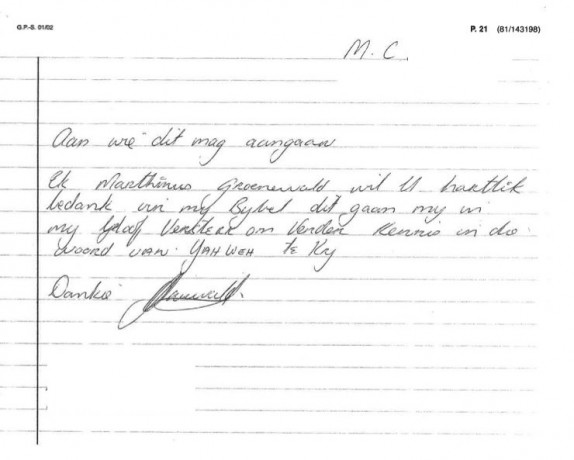 G.P.-S. 01/02
P. 21 (81/143198)
M. C.
Aan wie dit mag aangaan
Ek Marthinus Groenewald wil U hartlik
bedank vir my Bybel dit gaan my in
my Geloof Versterk om Verder Kennis in die
woord van YAHWEH te Kry
Dankie